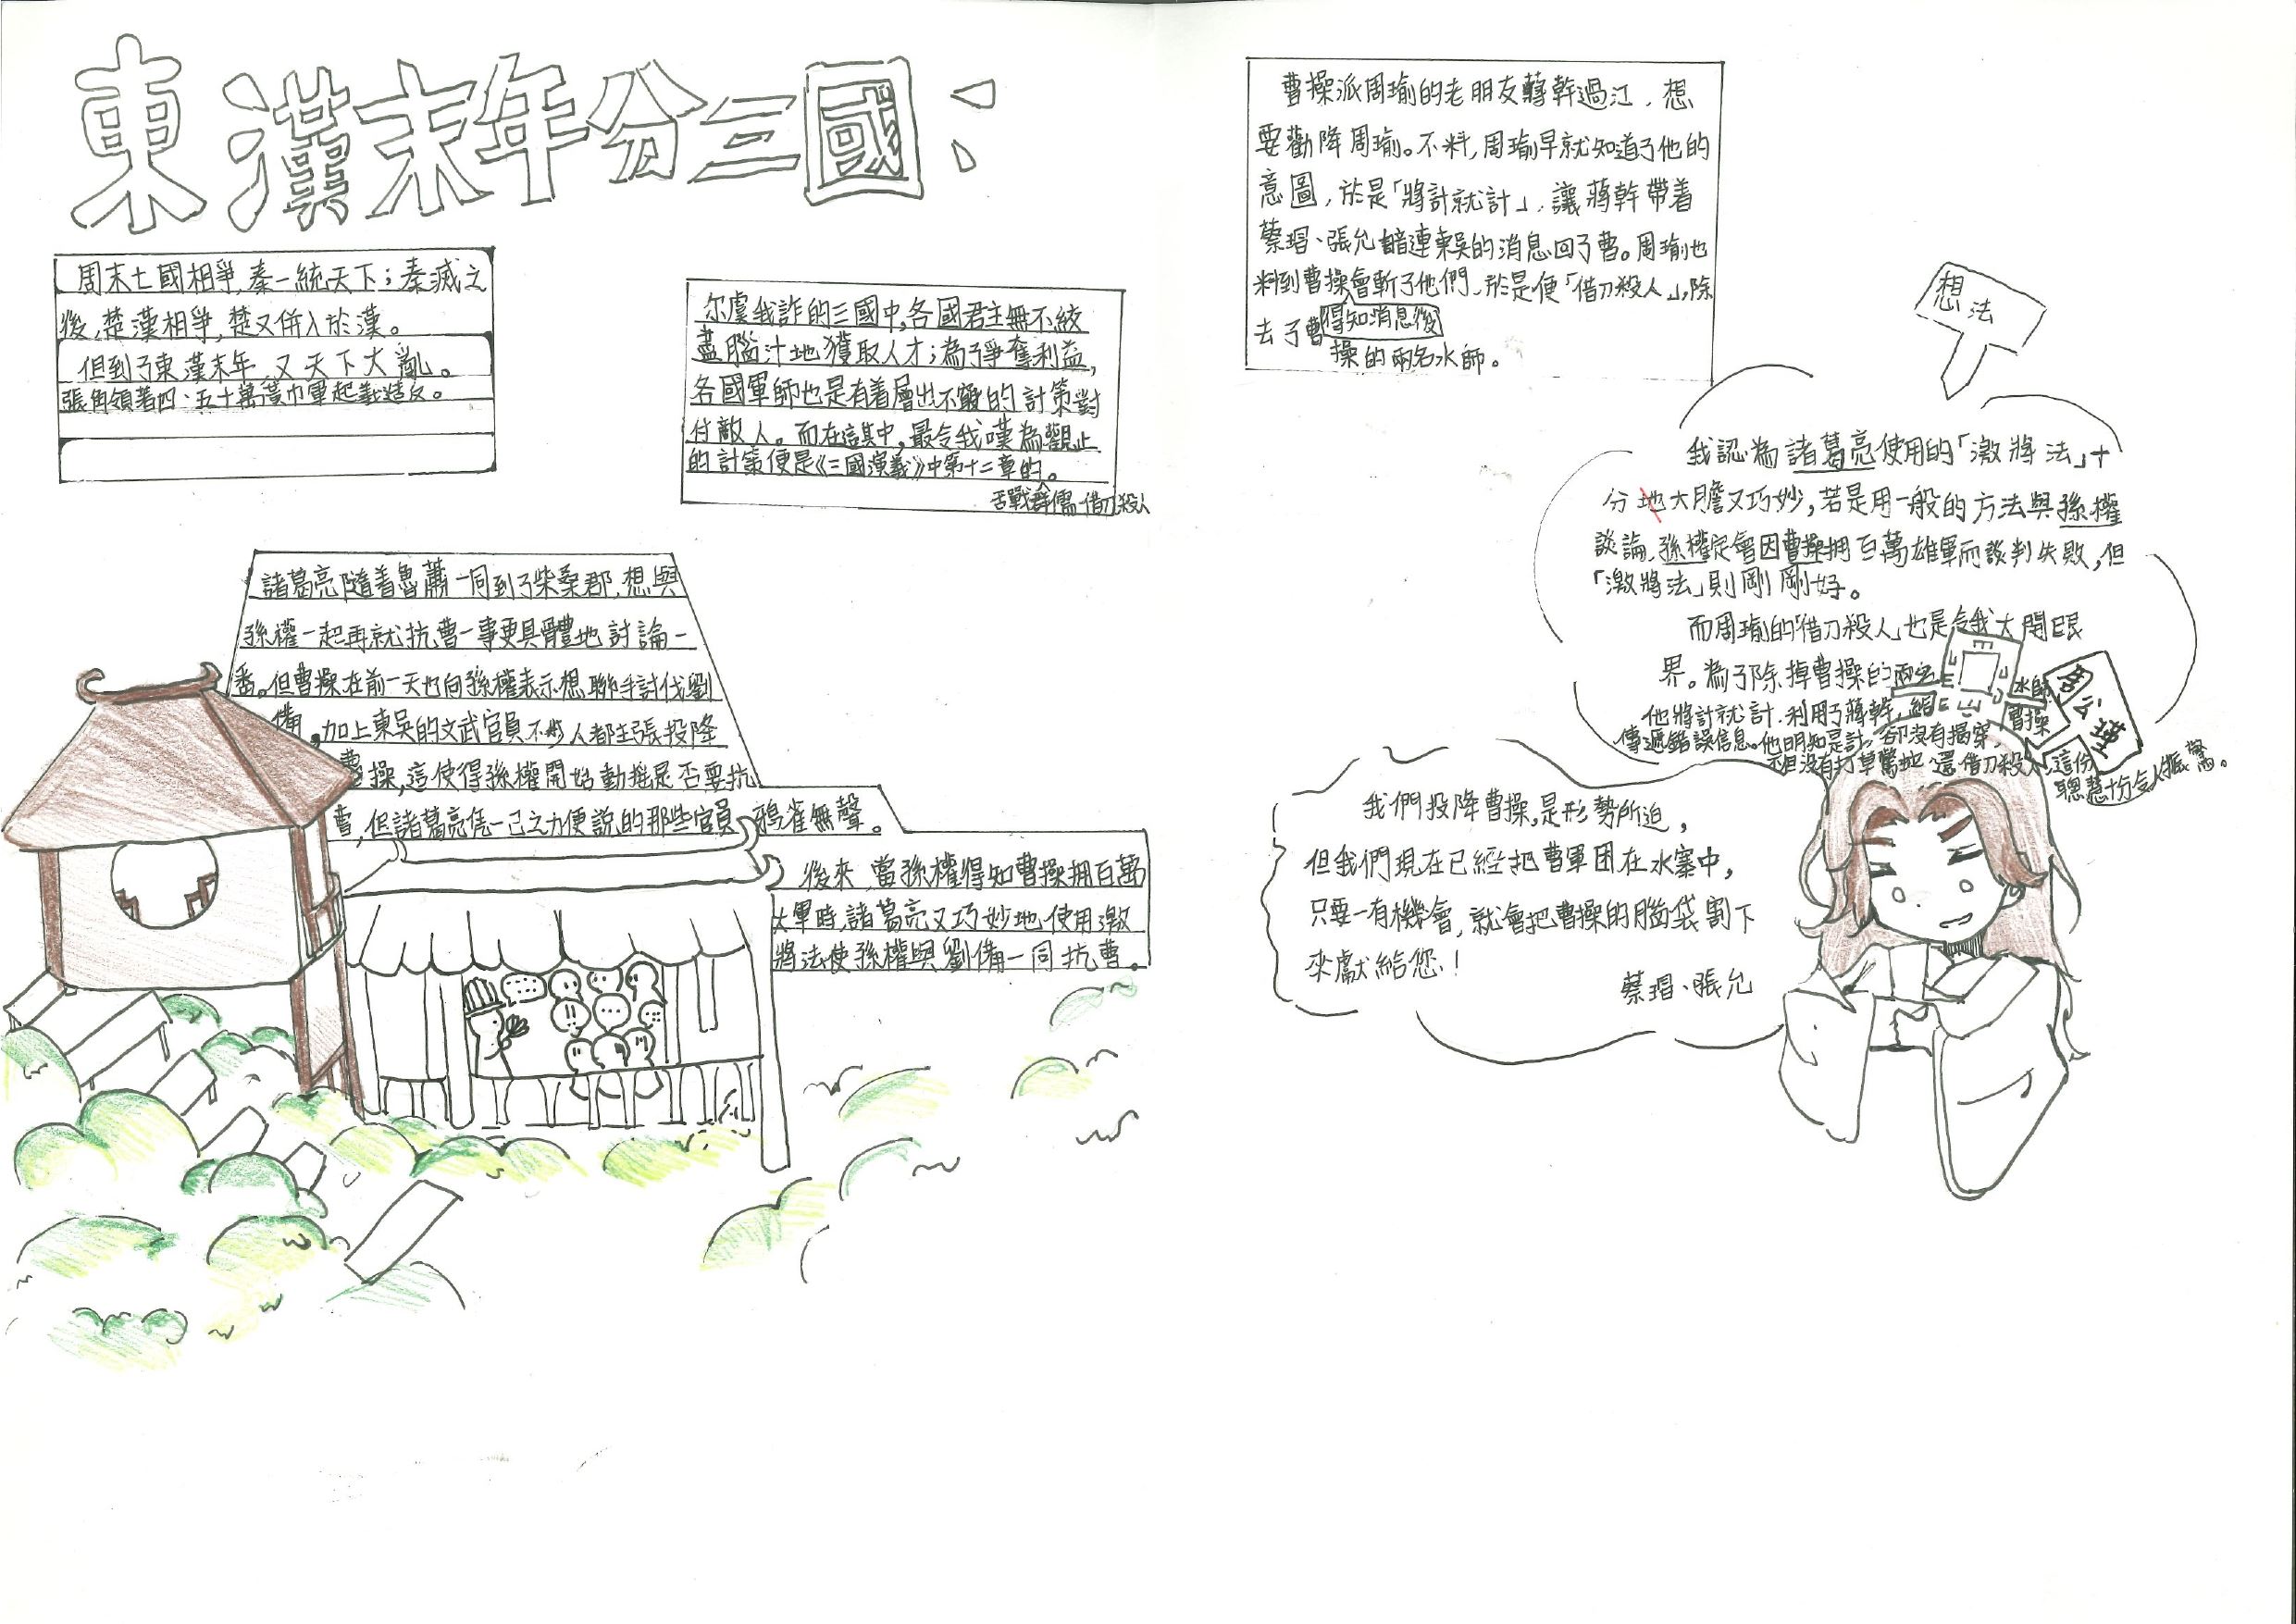 東漢末年分三國：
周末七國相爭,秦一統天下；秦滅之
後,楚漢相爭,楚又併入於漢。
但到了東漢末年,又天下大亂。
張角領著四、五十萬黃巾軍起義造反。
尔虞我詐的三國中,各國君主無不絞
盡腦汁地獲取人才；為了爭奪利益,
各國軍師也是有着層出不窮的計策對
付敵人。而在這其中,最令我嘆為觀止
的計策便是《三國演義》中第十二章的。
舌戰群儒 借刀殺人
諸葛亮隨着魯肅一同到了柴桑郡,想與
孫權一起再就抗曹一事更具體地討論一
番。但曹操在前一天也向孫權表示想聯手討伐劉
備,加上東吳的文武官員不少人都主張投降
曹操,這使得孫權開始動搖是否要抗
曹,但諸葛亮凭一己之力便說的那些官員鴉雀無聲。
後來,當孫權得知曹操擁百萬
大軍時,諸葛亮又巧妙地使用激
將法使孫權與劉備一同抗曹。
曹操派周瑜的老朋友蔣幹過江,想
要勸降周瑜。不料,周瑜早就知道了他的
意圖,於是「將計就計」,讓蔣幹帶着
蔡瑁、張允暗連東吳的消息回了曹。周瑜也
料到曹操會斬了他們,於是便「借刀殺人」,除
得知消息後
去了曹
操的兩名水師。
想法
我認為諸葛亮使用的「激將法」十
分地大膽又巧妙,若是用一般的方法與孫權
談論,孫權定會因曹操擁百萬雄軍而談判失敗,但
「激將法」則剛剛好。
而周瑜的「借刀殺人」也是令我大開眼
界。為了除掉曹操的兩名水師
他將計就計.利用了蔣幹,給曹操
傳遞錯誤信息。他明知是計,卻沒有揭穿,
不但没有打草驚蛇,還借刀殺人,這份
聰慧十份令人振驚。
周公瑾
我們投降曹操,是形勢所迫,
但我們現在已經把曹軍困在水寨中,
只要一有機會,就會把曹操的腦袋割下
來獻給您！
蔡瑁、張允